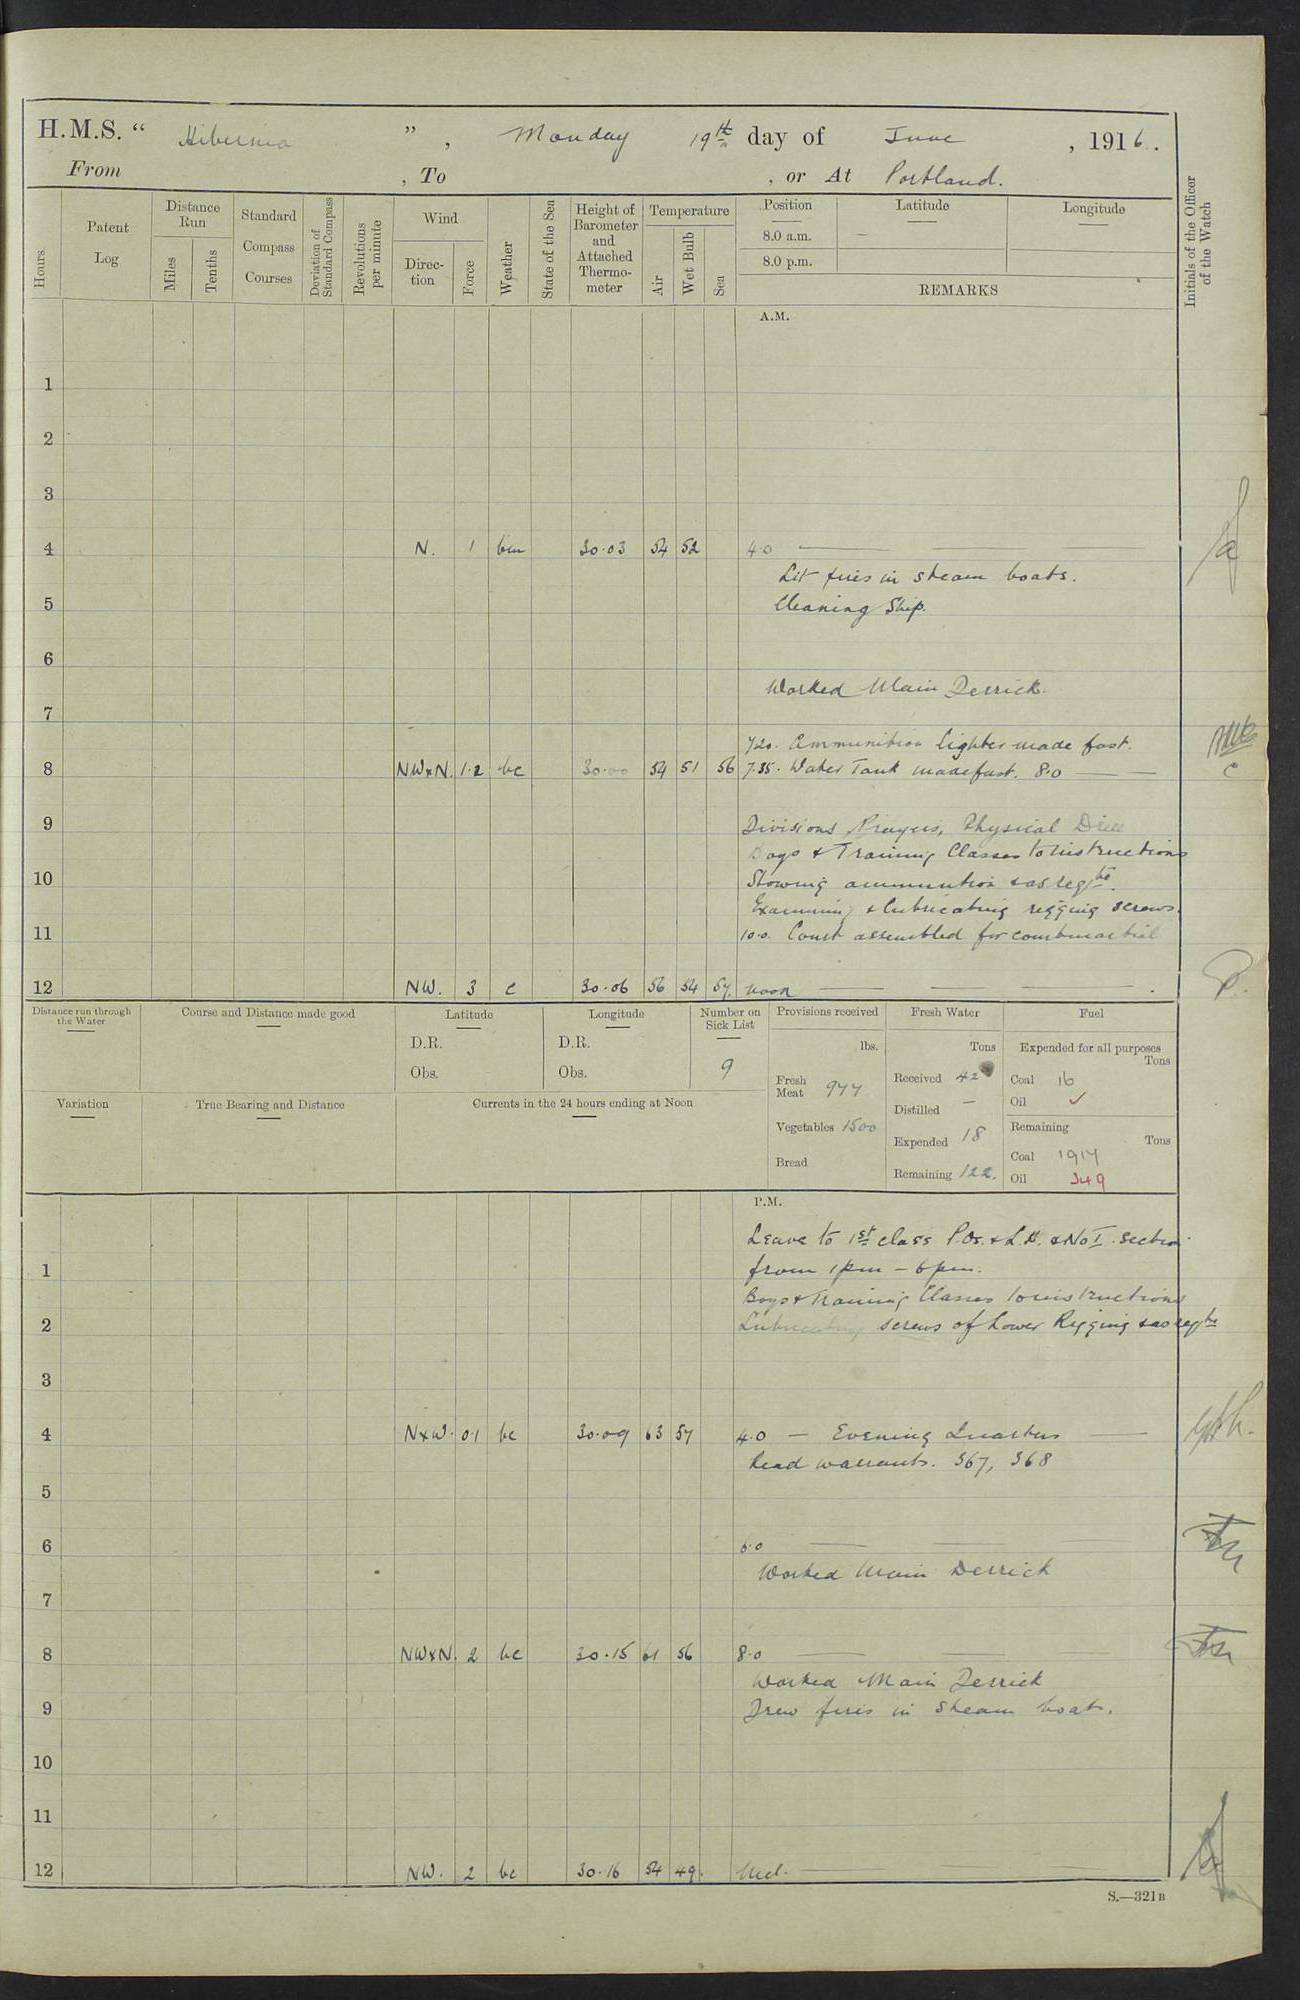 H.M.S. “ Hibernia ” , Monday 19th day of June , 1916.
From , To , or At Portland.
Hours
Patent Log
Distance Run
Miles
Tenths
Standard Compass Courses
Deviation of Standard Compass
Revolutions per minute
Wind
Direction
Force
Weather
State of the Sea
Height of Barometer and Attached Thermometer
Temperature
Air
Wet Bulb
Sea
Position
8.0 a.m. —
8.0 p.m.
Latitude
Longitude
REMARKS
Initials of the Officer of the Watch
A.M.
1
2
3
4 N. 1 bm 30·03 54 52 4·0
Lit fires in steam boats.
5 Cleaning Ship.
6
Worked Main Derrick.
7
7.20. Ammunition lighter made fast.
8 NW×N. 1·2 bc 30·00 54 51 56 7·35. Water Tank made fast. 8·0
9 Divisions Prayers, Physical Drill
Boys & Training Classes to instructions
10 Stowing ammunition & as reqte.
Examining & lubricating rigging screws.
11 10·0. Court assembled for courtmartial
12 NW. 3 c 30·06 56 54 57 noon
Distance run through the Water
Course and Distance made good
Latitude
D.R.
Obs.
Longitude
D.R.
Obs.
Number on Sick List
9
Provisions received
lbs.
Fresh Meat 977
Vegetables 1500
Bread
Fresh Water
Tons
Received 42
Distilled —
Expended 18
Remaining 122.
Fuel
Expended for all purposes
Tons
Coal 16
Oil ✓
Remaining
Tons
Coal 1917
Oil 349
Variation
True Bearing and Distance
Currents in the 24 hours ending at Noon
P.M.
Leave to 1st class P.Os. & L.H. & No I. section
1 from 1pm – 6pm.
Boys & Training Classes to instructions
2 Lubricating screws of Lower Rigging & as reqte
3
4 N×W. 0·1 bc 30·09 63 57 4.0 — Evening Quarters
Read warrants. 367, 368
5
6 6·0
Worked Main Derrick
7
8 NW×N. 2 bc 30·15 61 56 8·0
Worked Main Derrick
9 Drew fires in steam boats.
10
11
12 NW. 2 bc 30·16 54 49. Mid.
S.—321B